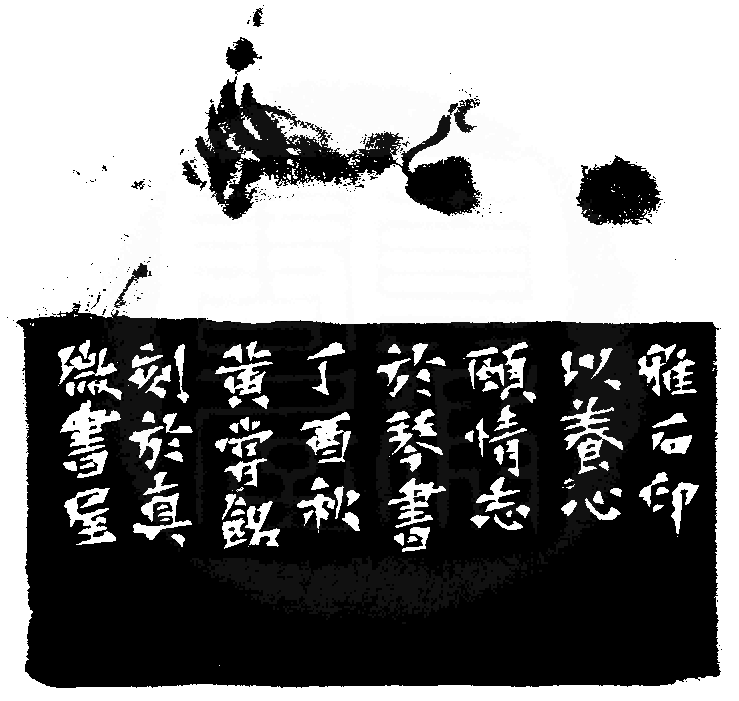 雅石印
以養心
頤情志
於琴書
丁酉秋
黄嘗銘
刻於真
微書屋